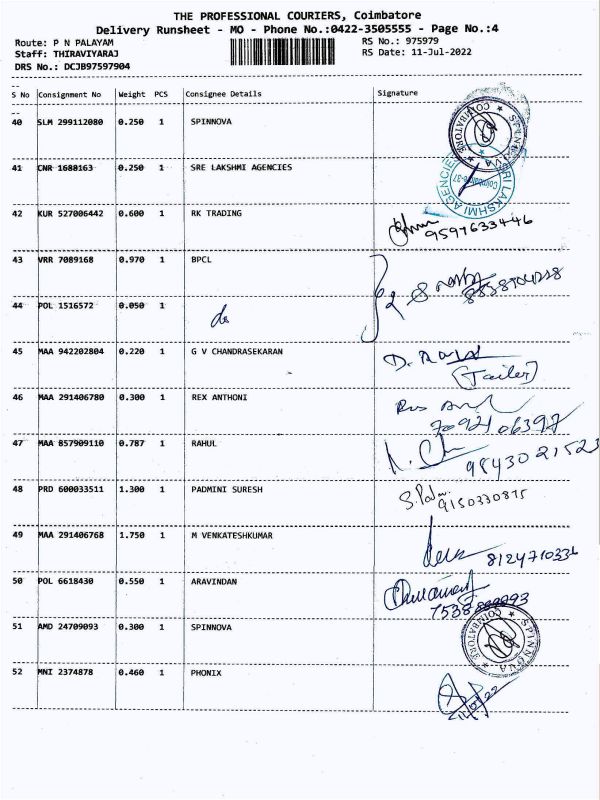 THE PROFESSIONAL COURIERS, Coimbatore
Delivery Runsheet - MO - Phone No.:0422-3505555 - Page No.:4
Route: P N PALAYAM RS No.: 975979
Staff: THIRAVIYARAJ RS Date: 11-Jul-2022
DRS No.: DCJB97597904
S No Consignment No Weight PCS Consignee Details Signature
40 SLM 299112080 0.250 1 SPINNOVA
SPINNOVA COIMBATORE
41 CNR 1688163 0.250 1 SRE LAKSHMI AGENCIES
SRI LAKSHMI AGENCIES
42 KUR 527006442 0.600 1 RK TRADING
9597633446
43 VRR 7089168 0.970 1 BPCL
44 POL 1516572 0.050 1 do
45 MAA 942202804 0.220 1 G V CHANDRASEKARAN
(Tailer)
46 MAA 291406780 0.300 1 REX ANTHONI
7092106397
47 MAA 857909110 0.787 1 RAHUL
9843021523
48 PRD 600033511 1.300 1 PADMINI SURESH
9150330875
49 MAA 291406768 1.750 1 M VENKATESHKUMAR
8124710336
50 POL 6618430 0.550 1 ARAVINDAN
51 AMD 24709093 0.300 1 SPINNOVA
SPINNOVA COIMBATORE
52 MNI 2374878 0.460 1 PHONIX